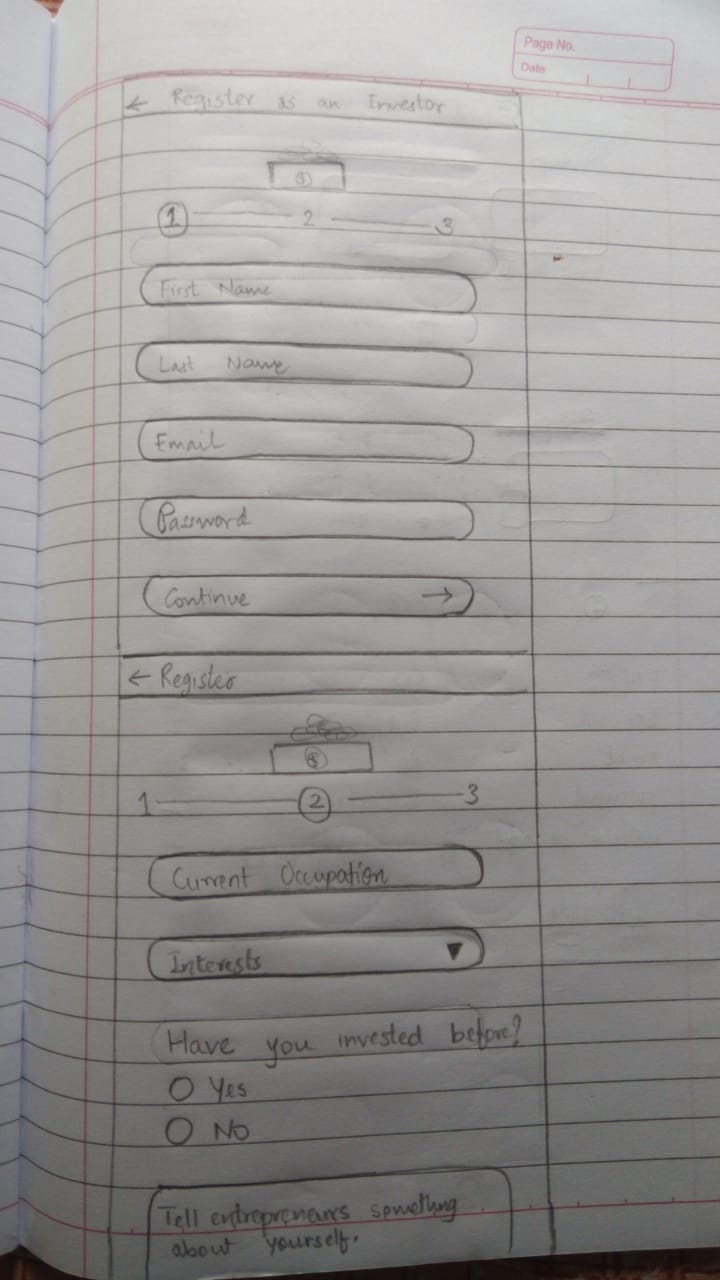 Page No.
Date
← Register as an Investor
$
1 2 3
First Name
Last Name
Email
Password
Continue →
← Register
$
1 2 3
Current Occupation
Interests ▼
Have you invested before?
Yes
No
Tell entrepreneurs something
about yourself.